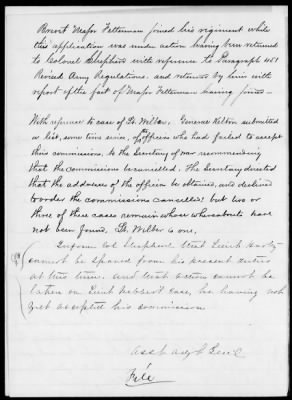 Brevet Major Fetterman joined his regiment while
this application was under action having been returned
to Colonel Shepherd with reference to Paragraph 451
Revised Army Regulations. and returned by him with
report of the fact of Major Fetterman having joined—
With reference to case of Lt. Wilber, General Kelton submitted
a list, some time since, of the officers who had failed to accept
their commissions, to the Secretary of War recommending
that the commissions be cancelled. The Secretary directed
that the addresses of the officers be obtained, and declined
to order the commissions cancelled but two or
three of these cases remain whose whereabouts have
not been found, Lt. Wilber is one.
Inform Col Shepherd that Lieut
cannot be spared from his present duties
at this time. And that action cannot be
taken on Lieut Webber's case, he having not
yet accepted his commission.
Asst Adjt Genl
File